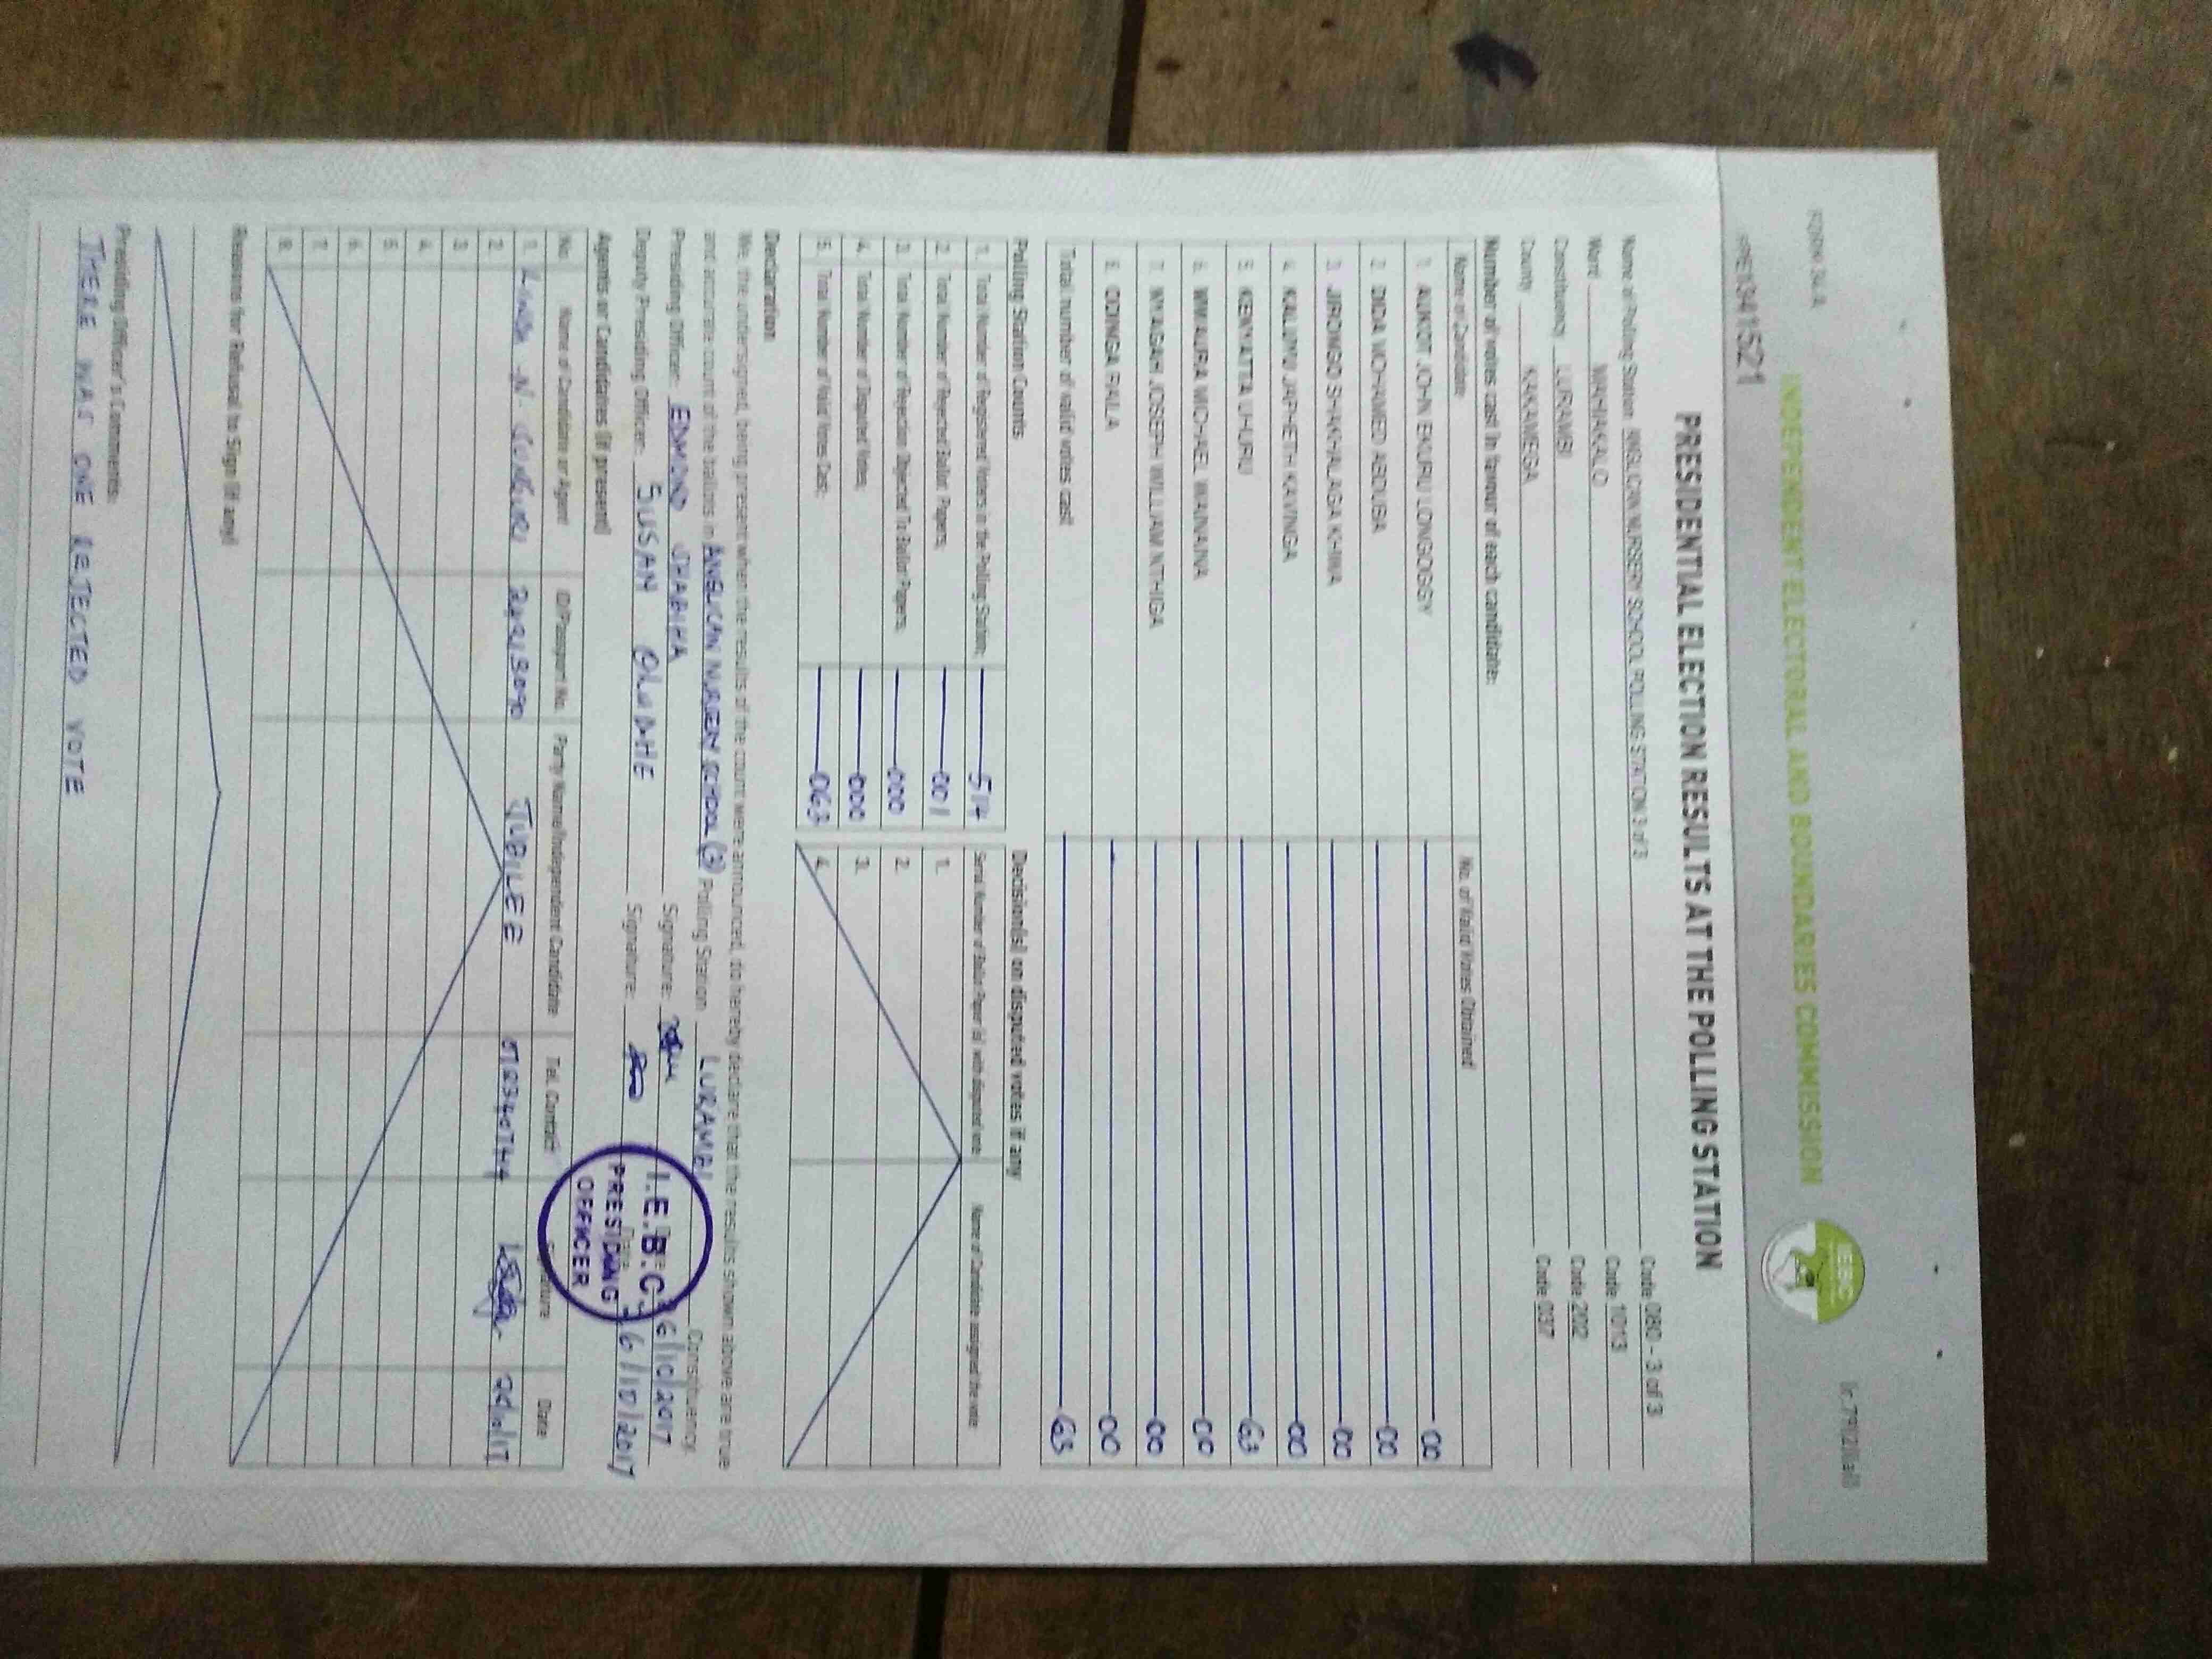 FORM 34A
INDEPENDENT ELECTORAL AND BOUNDARIES COMMISSION
IEBC
PRESIDENTIAL ELECTION RESULTS AT THE POLLING STATION
Name of Polling Station ANGLICAN NURSERY SCHOOL POLLING STATION 3 of 3 Code 080 - 3 of 3
Ward MAHIAKALO Code 1013
Constituency LURAMBI Code 202
County KAKAMEGA Code 037
Number of votes cast in favour of each candidate:
Name of Candidate No. of Valid Votes Obtained
1. AUKOT JOHN EKURU LONGOGGY 00
2. DIDA MOHAMED ABDUBA 00
3. JIRONGO SHAKHALAGA KHWA 00
4. KALUYU JAPHETH KAVINGA 00
5. KENYATTA UHURU 63
6. MWAURA MICHAEL WAINAINA 00
7. NYAGAH JOSEPH WILLIAM NTHIGA 00
8. ODINGA RAILA 00
Total number of valid votes cast 63
Polling Station Counts
1. Total Number of Registered Voters in the Polling Station; 514
2. Total Number of Rejected Ballot Papers; 001
3. Total Number of Rejection Objected To Ballot Papers; 000
4. Total Number of Disputed Votes; 000
5. Total Number of Valid Votes Cast; 063
Decision(s) on disputed votes if any
Serial Number of Ballot Paper (s) with disputed vote Name of Candidate assigned the vote
1.
2.
3.
4.
Declaration
We, the undersigned, being present when the results of the count were announced, do hereby declare that the results shown above are true
and accurate count of the ballots in ANGLICAN NURSERY SCHOOL (3) Polling Station LURAMBI Constituency.
Presiding Officer: EDMOND Signature: 26/10/2017
Deputy Presiding Officer: SUSAN Signature: 26/10/2017
I.E.B.C.
PRESIDING
OFFICER
Agents or Candidates (if present)
No Name of Candidate or Agent ID/Passport No. Party Name/Independent Candidate Tel. Contact Signature Date
1. JUBILEE
2.
3.
4.
5.
6.
7.
8.
Reasons for Refusal to Sign (if any)
Presiding Officer's Comments:
THERE WAS ONE REJECTED VOTE